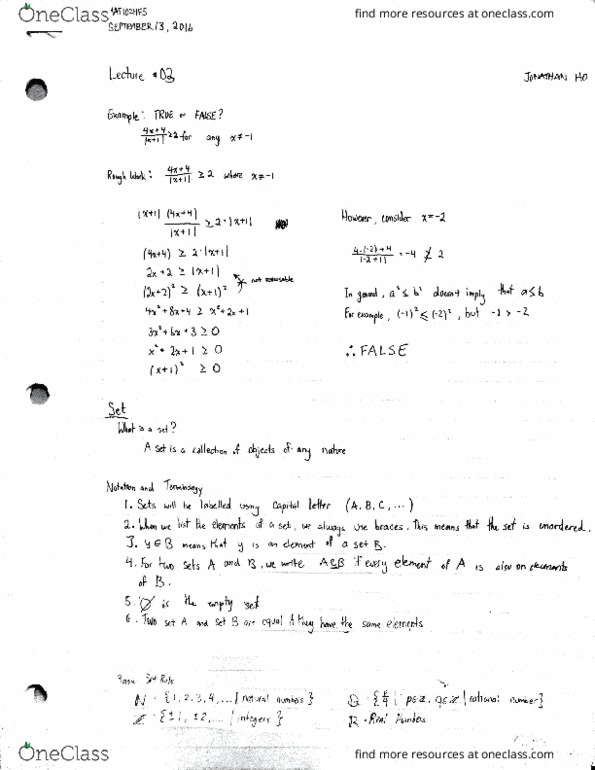 OneClass
find more resources at oneclass.com
MAT102H5S
SEPTEMBER 13, 2016
Lecture #03
JONATHAN HO
Example: TRUE or FALSE?
(4x+4)/|x+1| ≥ 2 for any x≠-1
Rough Work: (4x+4)/|x+1| ≥ 2 where x≠-1
|x+1| (4x+4)/|x+1| ≥ 2·|x+1|
(4x+4) ≥ 2·|x+1|
2x+2 ≥ |x+1|
not reversable
(2x+2)² ≥ (x+1)²
4x²+8x+4 ≥ x²+2x+1
3x²+6x+3 ≥ 0
x²+2x+1 ≥ 0
(x+1)² ≥ 0
However, consider x=-2
(4·(-2)+4)/|-2+1| = -4 ≱ 2
In general, a² ≤ b² doesn't imply that a≤b
For example, (-1)² ≤ (-2)², but -1 > -2
∴ FALSE
Set
What is a set?
A set is a collection of objects of any nature
Notation and Terminology
1. Sets will be labelled using capital letter (A, B, C, ...)
2. When we list the elements of a set, we always use braces. This means that the set is unordered.
3. y∈B means that y is an element of a set B.
4. For two sets A and B, we write A⊆B if every element of A is also an elements
of B.
5. ∅ is the empty set
6. Two set A and set B are equal if they have the same elements
Set
N = {1, 2, 3, 4, ... | natural numbers}
Z = {±1, ±2, ... | integers}
Q = {p/q | p∈Z, q∈Z | rational number}
R · Real Numbers
OneClass
find more resources at oneclass.com